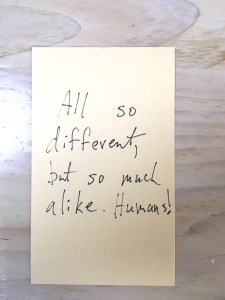 All so
different,
but so much
alike. Humans!